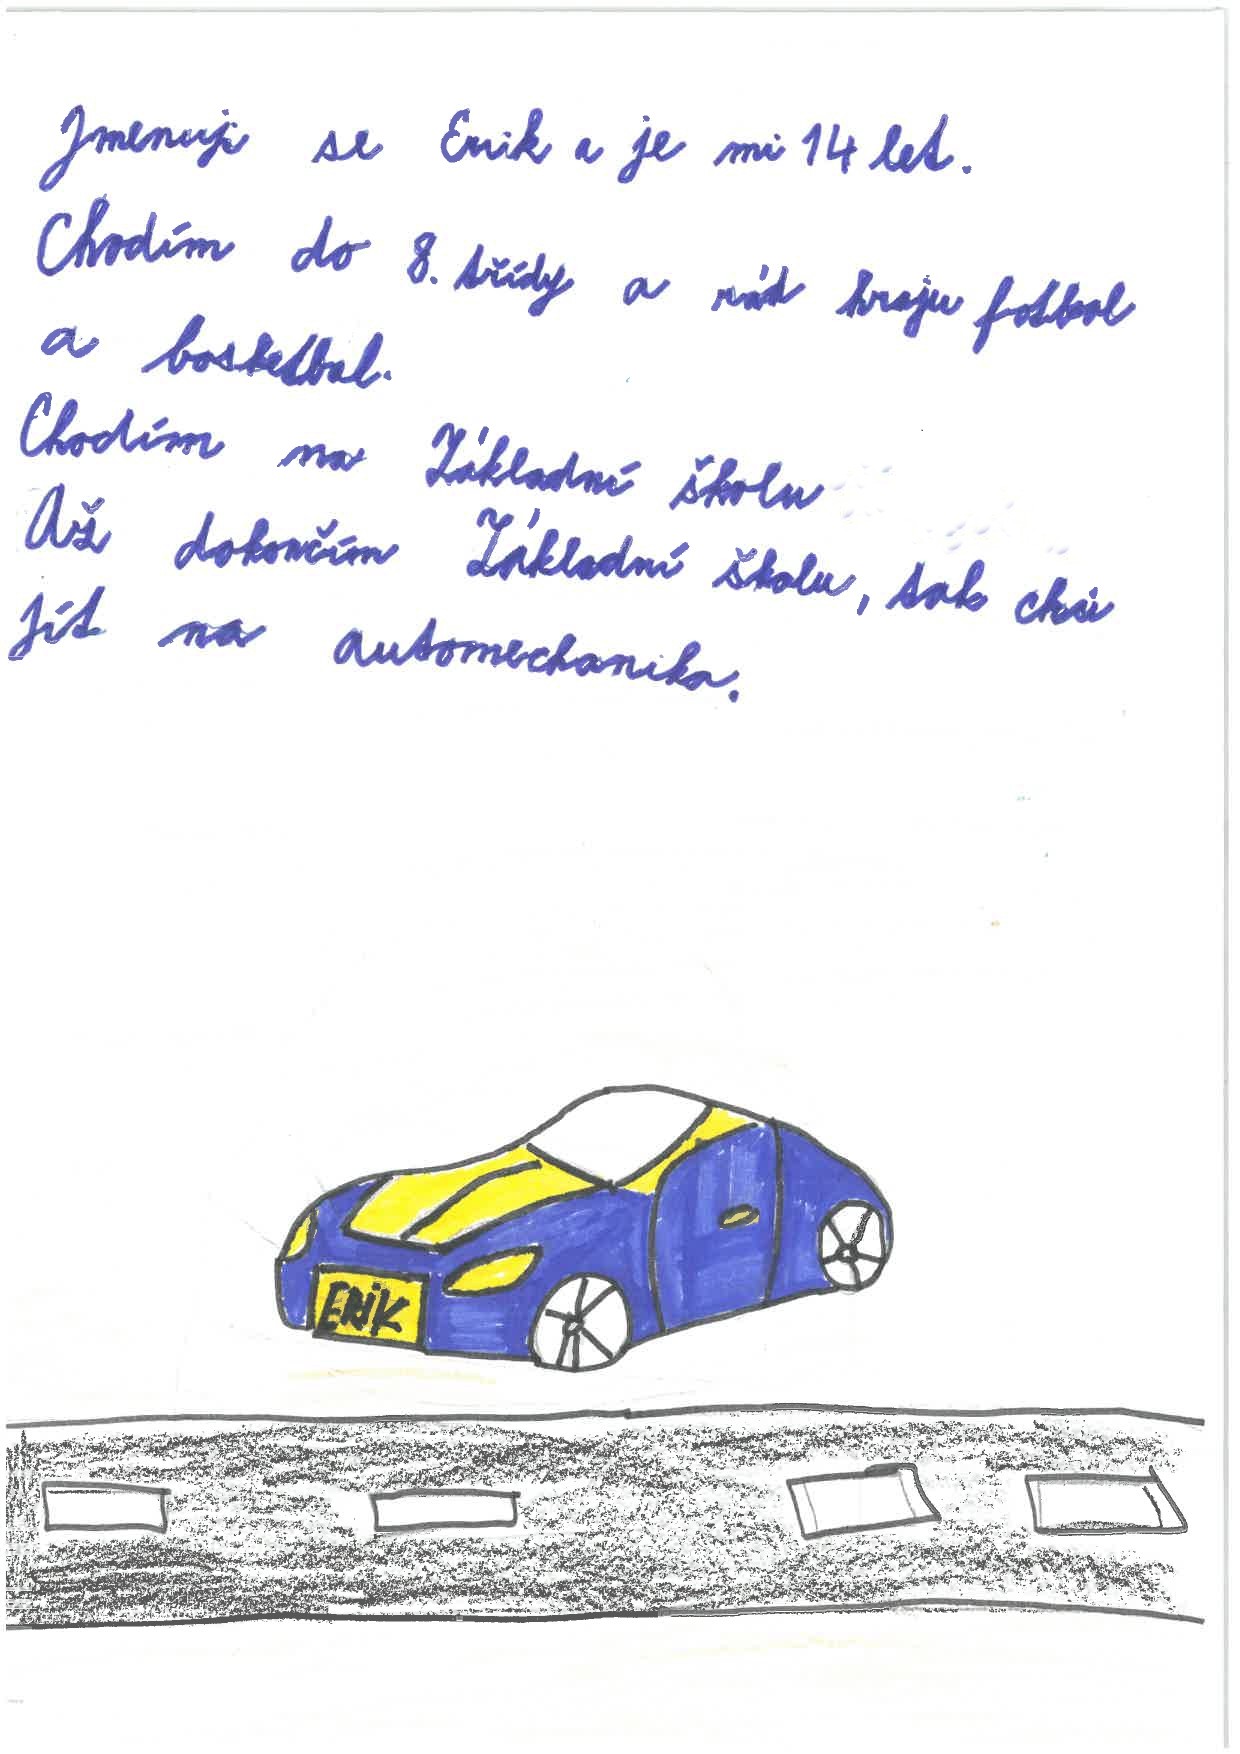 Jmenuji se Erik a je mi 14 let.
Chodím do 8. třídy a rád hraju fotbal
a basketbal.
Chodím na Základní školu
Až dokončím Základní školu, tak chci
jít na automechanika.
ERiK